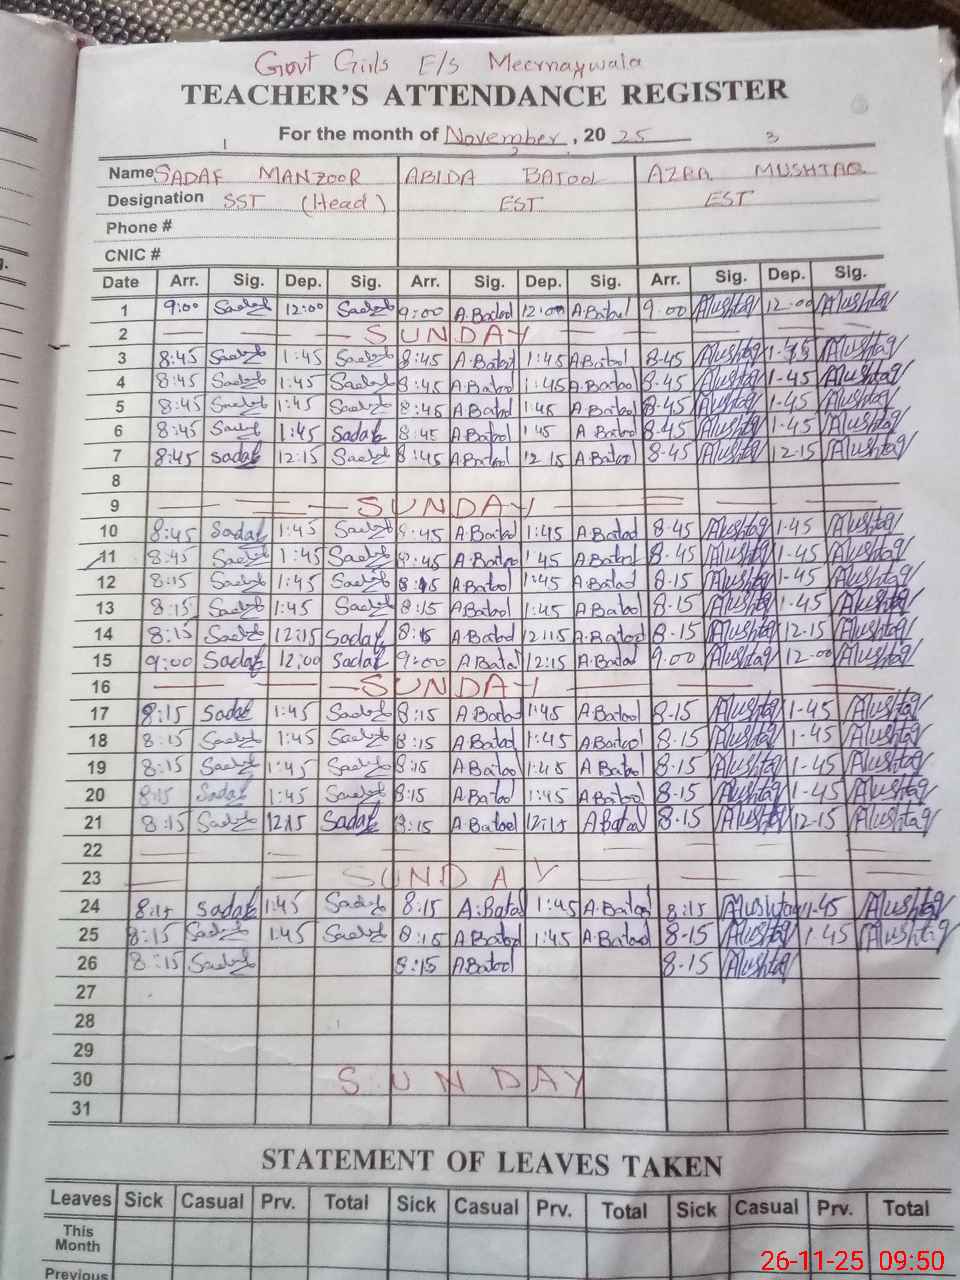 Govt Girls E/S Meernaywala
TEACHER'S ATTENDANCE REGISTER
For the month of November, 2025
1 2 3
Name SADAF MANZOOR ABIDA BATOOL AZRA MUSHTAQ
Designation SST (Head) EST EST
Phone #
CNIC #
Date Arr. Sig. Dep. Sig. Arr. Sig. Dep. Sig. Arr. Sig. Dep. Sig.
1 9:00 Sadaf 12:00 Sadaf 9:00 A.Batool 12:00 A.Batool 9.00 Mushtaq 12.00 Mushtaq
2 SUNDAY
3 8:45 Sadaf 1:45 Sadaf 8:45 A.Batool 1:45 A.Batool 8.45 Mushtaq 1.45 Mushtaq
4 8:45 Sadaf 1:45 Sadaf 8:45 A.Batool 1:45 A.Batool 8.45 Mushtaq 1.45 Mushtaq
5 8:45 Sadaf 1:45 Sadaf 8:45 A.Batool 1:45 A.Batool 8.45 Mushtaq 1.45 Mushtaq
6 8:45 Sadaf 1:45 Sadaf 8:45 A.Batool 1:45 A.Batool 8.45 Mushtaq 1.45 Mushtaq
7 8:45 Sadaf 12:15 Sadaf 8:45 A.Batool 12:15 A.Batool 8.45 Mushtaq 12.15 Mushtaq
8
9 SUNDAY
10 8:45 Sadaf 1:45 Sadaf 8:45 A.Batool 1:45 A.Batool 8.45 Mushtaq 1.45 Mushtaq
11 8:45 Sadaf 1:45 Sadaf 8:45 A.Batool 1:45 A.Batool 8.45 Mushtaq 1.45 Mushtaq
12 8:15 Sadaf 1:45 Sadaf 8:15 A.Batool 1:45 A.Batool 8.15 Mushtaq 1.45 Mushtaq
13 8:15 Sadaf 1:45 Sadaf 8:15 A.Batool 1:45 A.Batool 8.15 Mushtaq 1.45 Mushtaq
14 8:15 Sadaf 12:15 Sadaf 8:15 A.Batool 12:15 A.Batool 8.15 Mushtaq 12.15 Mushtaq
15 9:00 Sadaf 12:00 Sadaf 9:00 A.Batool 12:15 A.Batool 9.00 Mushtaq 12.00 Mushtaq
16 SUNDAY
17 8:15 Sadaf 1:45 Sadaf 8:15 A.Batool 1:45 A.Batool 8.15 Mushtaq 1.45 Mushtaq
18 8:15 Sadaf 1:45 Sadaf 8:15 A.Batool 1:45 A.Batool 8.15 Mushtaq 1.45 Mushtaq
19 8:15 Sadaf 1:45 Sadaf 8:15 A.Batool 1:45 A.Batool 8.15 Mushtaq 1.45 Mushtaq
20 8:15 Sadaf 1:45 Sadaf 8:15 A.Batool 1:45 A.Batool 8.15 Mushtaq 1.45 Mushtaq
21 8:15 Sadaf 12:15 Sadaf 8:15 A.Batool 12:15 A.Batool 8.15 Mushtaq 12.15 Mushtaq
22
23 SUNDAY
24 8:15 Sadaf 1:45 Sadaf 8:15 A.Batool 1:45 A.Batool 8:15 Mushtaq 1.45 Mushtaq
25 8:15 Sadaf 1:45 Sadaf 8:15 A.Batool 1:45 A.Batool 8.15 Mushtaq 1.45 Mushtaq
26 8:15 Sadaf 8:15 A.Batool 8.15 Mushtaq
27
28
29
30 SUNDAY
31
STATEMENT OF LEAVES TAKEN
Leaves Sick Casual Prv. Total Sick Casual Prv. Total Sick Casual Prv. Total
This Month
Previous
26-11-25 09:50